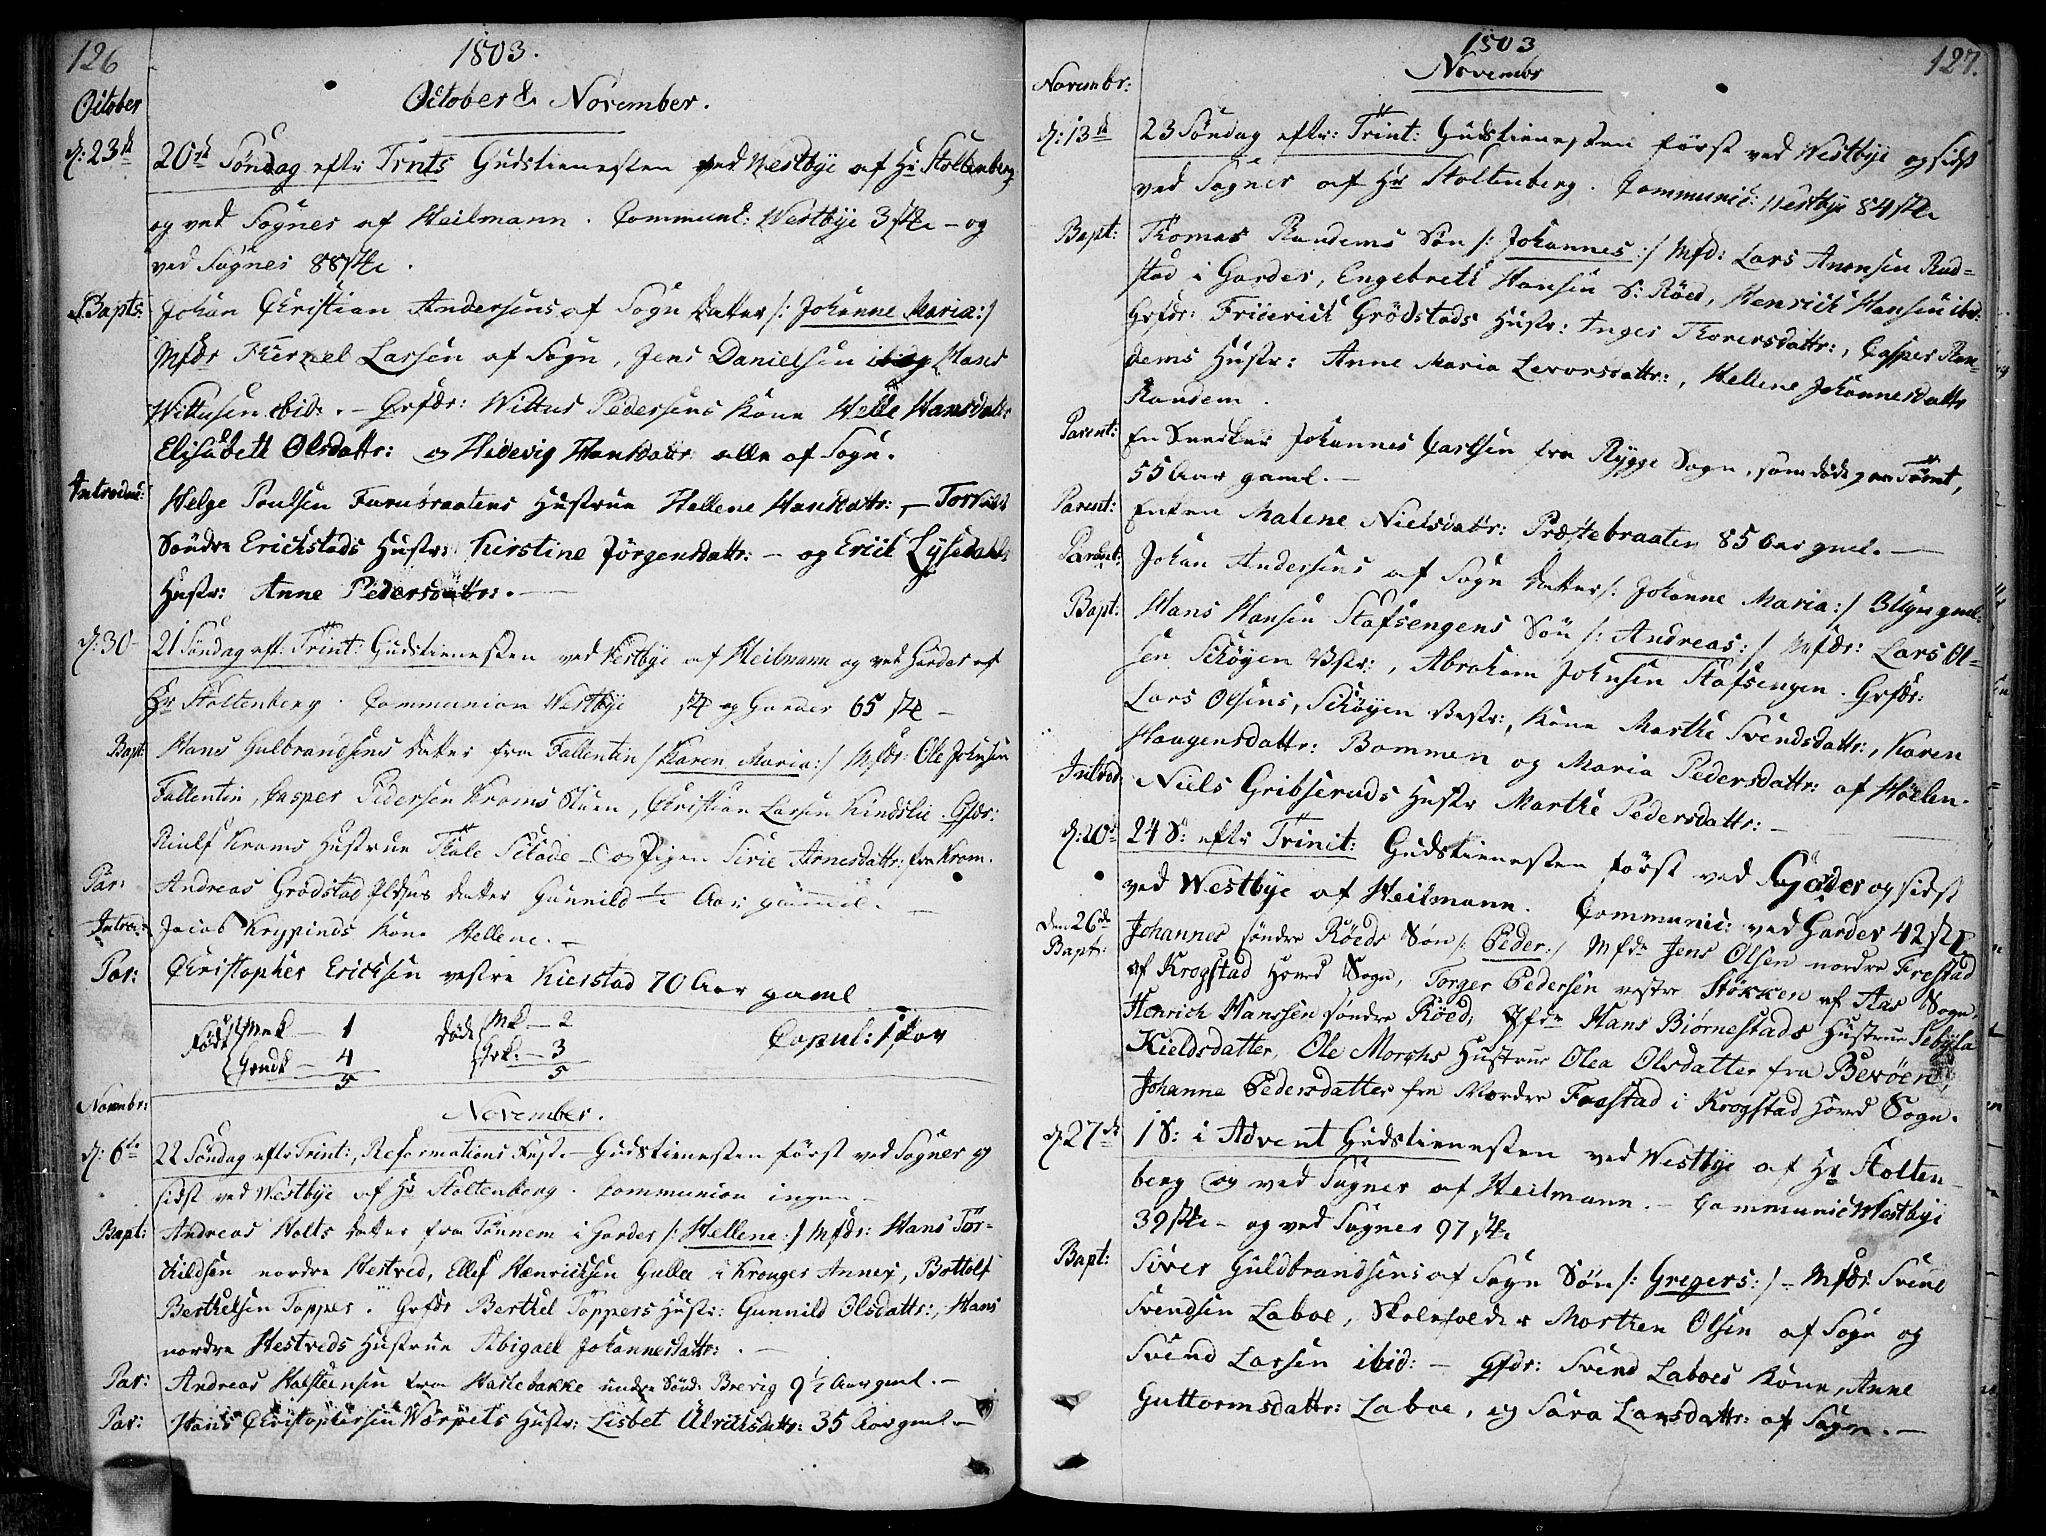 126
1803.
October & November.
October
d: 23de 20de Søndag eftr Trnts Gudstienesten ved Westbye af Hr Stoltenberg
og ved Sogner af Heilmann. Communic: Westbye 3 stk – og
ved Sogner 88 stk.
Bapts: Johan Christian Andersens af Sogn datter /: Johanne Maria :/
Mfdr Kiernel Larsen af Sogn, Jens Danielsen ibid og Hans
Wittusen ibid. – Gvfdr: Wittus Pedersens Kone Helle Hansdattr
Elisabeth Olsdattr: og Hedevig Hansdattr alle af Sogn.
Introduc: Helge Poulsen Furubraatens Hustrue Hellene Hansdattr: – Torkild
Søndre Erichstads Hustr: Kirstine Jørgensdattr: – og Erich Lysedahls
Hustr: Anne Pedersdattr: . –
d: 30 21 Søndag eft: Trint: Gudstienesten ved Westbye af Heilmann og ved Garder af
Hr Stoltenberg. Communion Westbye stk og Garder 65 stk –
Bapt: Hans Gulbrandsens datter fra Fallentin /: Karen Maria :/ Mfdr: Ole Johnsen
Fallentin, Casper Pedersen Kroms Stuen, Christian Larsen Kindslie. Gvfdr:
Riulf Kroms Hustrue Thale – og Pigen Sirie Arnesdattr: fra Krom.
Par: Andreas Grødstad datter Gunnild ½ Aar gammel. –
Introd: Jacob Krypinds Kone Hellene. –
Par: Christopher Erichsen vestre Kierstad 70 Aar gaml
Fødte Mnk – 1 døde Mk – 2 Copul: 1 par
Qvndk – 4 Qvk: – 3
5 5
Novembr: November.
d: 6te 22 Søndag eftr Trint:, Reformations Fest. – Gudstienesten først ved Sogner og
sidst ved Westbye af Hr Stoltenberg. Communion ingen –
Bapt: Andreas Holts datter fra Tønnem i Garder /: Hellene :/ Mfdr: Hans Tor-
kildsen nordre Hestved, Ellef Henrichsen Gulla i Krouger Annex, Bottolf
Berthelsen Topper. Gvfdr Berthel Toppers Hustr: Gunnild Olsdattr:, Hans
nordre Hestveds Hustrue Abigael Johannesdattr: . –
Par: Andreas Halsteensen fra Haslebakke under Sønd: Brevig 9½ Aar gml. –
Par: Hans Christophersen Worpets Hustr: Lisbet Ulrichsdattr: 35 Aar gml –
1803
127.
Novembr
Novembr:
d: 13de 23 Søndag eftr: Trint: Gudstienesten først ved Westbye og sidst
ved Sogner af Hr Stoltenberg. Communic: Westbye 84 stk
Bapt: Thomas Randems Søn /: Johannes :/ Mfd: Lars Anensen Rud-
stad i Garder, Engebrett Hansen S: Røed, Henrich Hansen ibid:
Gvfdr: Friderich Grødstads Hustr: Inger Thoresdattr:, Casper Ran-
dems Hustr: Anne Maria Levorsdattr:, Hellene Johannesdattr
Randem.
Parent: En Snecker Johannes Carlsen fra Rygge Sogn, som døde paa Sømt,
55 Aar gaml. –
Parent: Enken Malene Nielsdattr: Præstebraaten 85 Aar gml. –
Parent: Johan Andersens af Sogn datter /: Johanne Maria :/ 3 Uger gml:
Bapt: Hans Hansen Stafsengens Søn /: Andreas :/ Mfdr: Lars Ol-
sen Schøyen Vestr:, Abraham Johnsen Stafsengen. Gvfdr:
Lars Olsens, Schøyen Vestr:, Kone Marthe Svendsdattr:, Karen
Haagensdattr: Bommen og Maria Pedersdattr: af Hølen.
Introd: Niels Gribseruds Hustr Marthe Pedersdattr: –
d: 20de 24 S: eftr Trinit: Gudstienesten først ved Garder og sidst
ved Westbye af Heilmann. Communic: ved Garder 42 stk
Den 26de
Bapt: Johannes søndre Røeds Søn /: Peder :/ Mfdr Jens Olsen nordre Frestad
af Krogstad Hovd Sogn, Torger Pedersen vestre Støkken af Aas Sogn,
Henrich Hanssen søndre Røed, Qfdr Hans Biørnestads Hustrue Sebylla
Kieldsdatter, Ole Morchs Hustrue Olea Olsdatter fra Bevøen,
Johanne Pedersdatter fra Nordre Frestad i Krogstad Hovd Sogn.
d: 27de 1 S: i Advent Gudstienesten ved Westbye af Hr Stolten-
berg og ved Sogner af Heilmann. – Communic Westbye
39 stk – og ved Sogner 97 stk
Bapt: Siver Guldbrandsens af Sogn Søn /: Gregers :/ – Mfdr Svend
Svendsen Laboe, Skoleholder Morthen Olsen af Sogn og
Svend Larsen ibid: – Qfdr: Svend Laboes Kone, Anne
Guttormsdattr: Laboe, og Sara Larsdattr: af Sogn. –